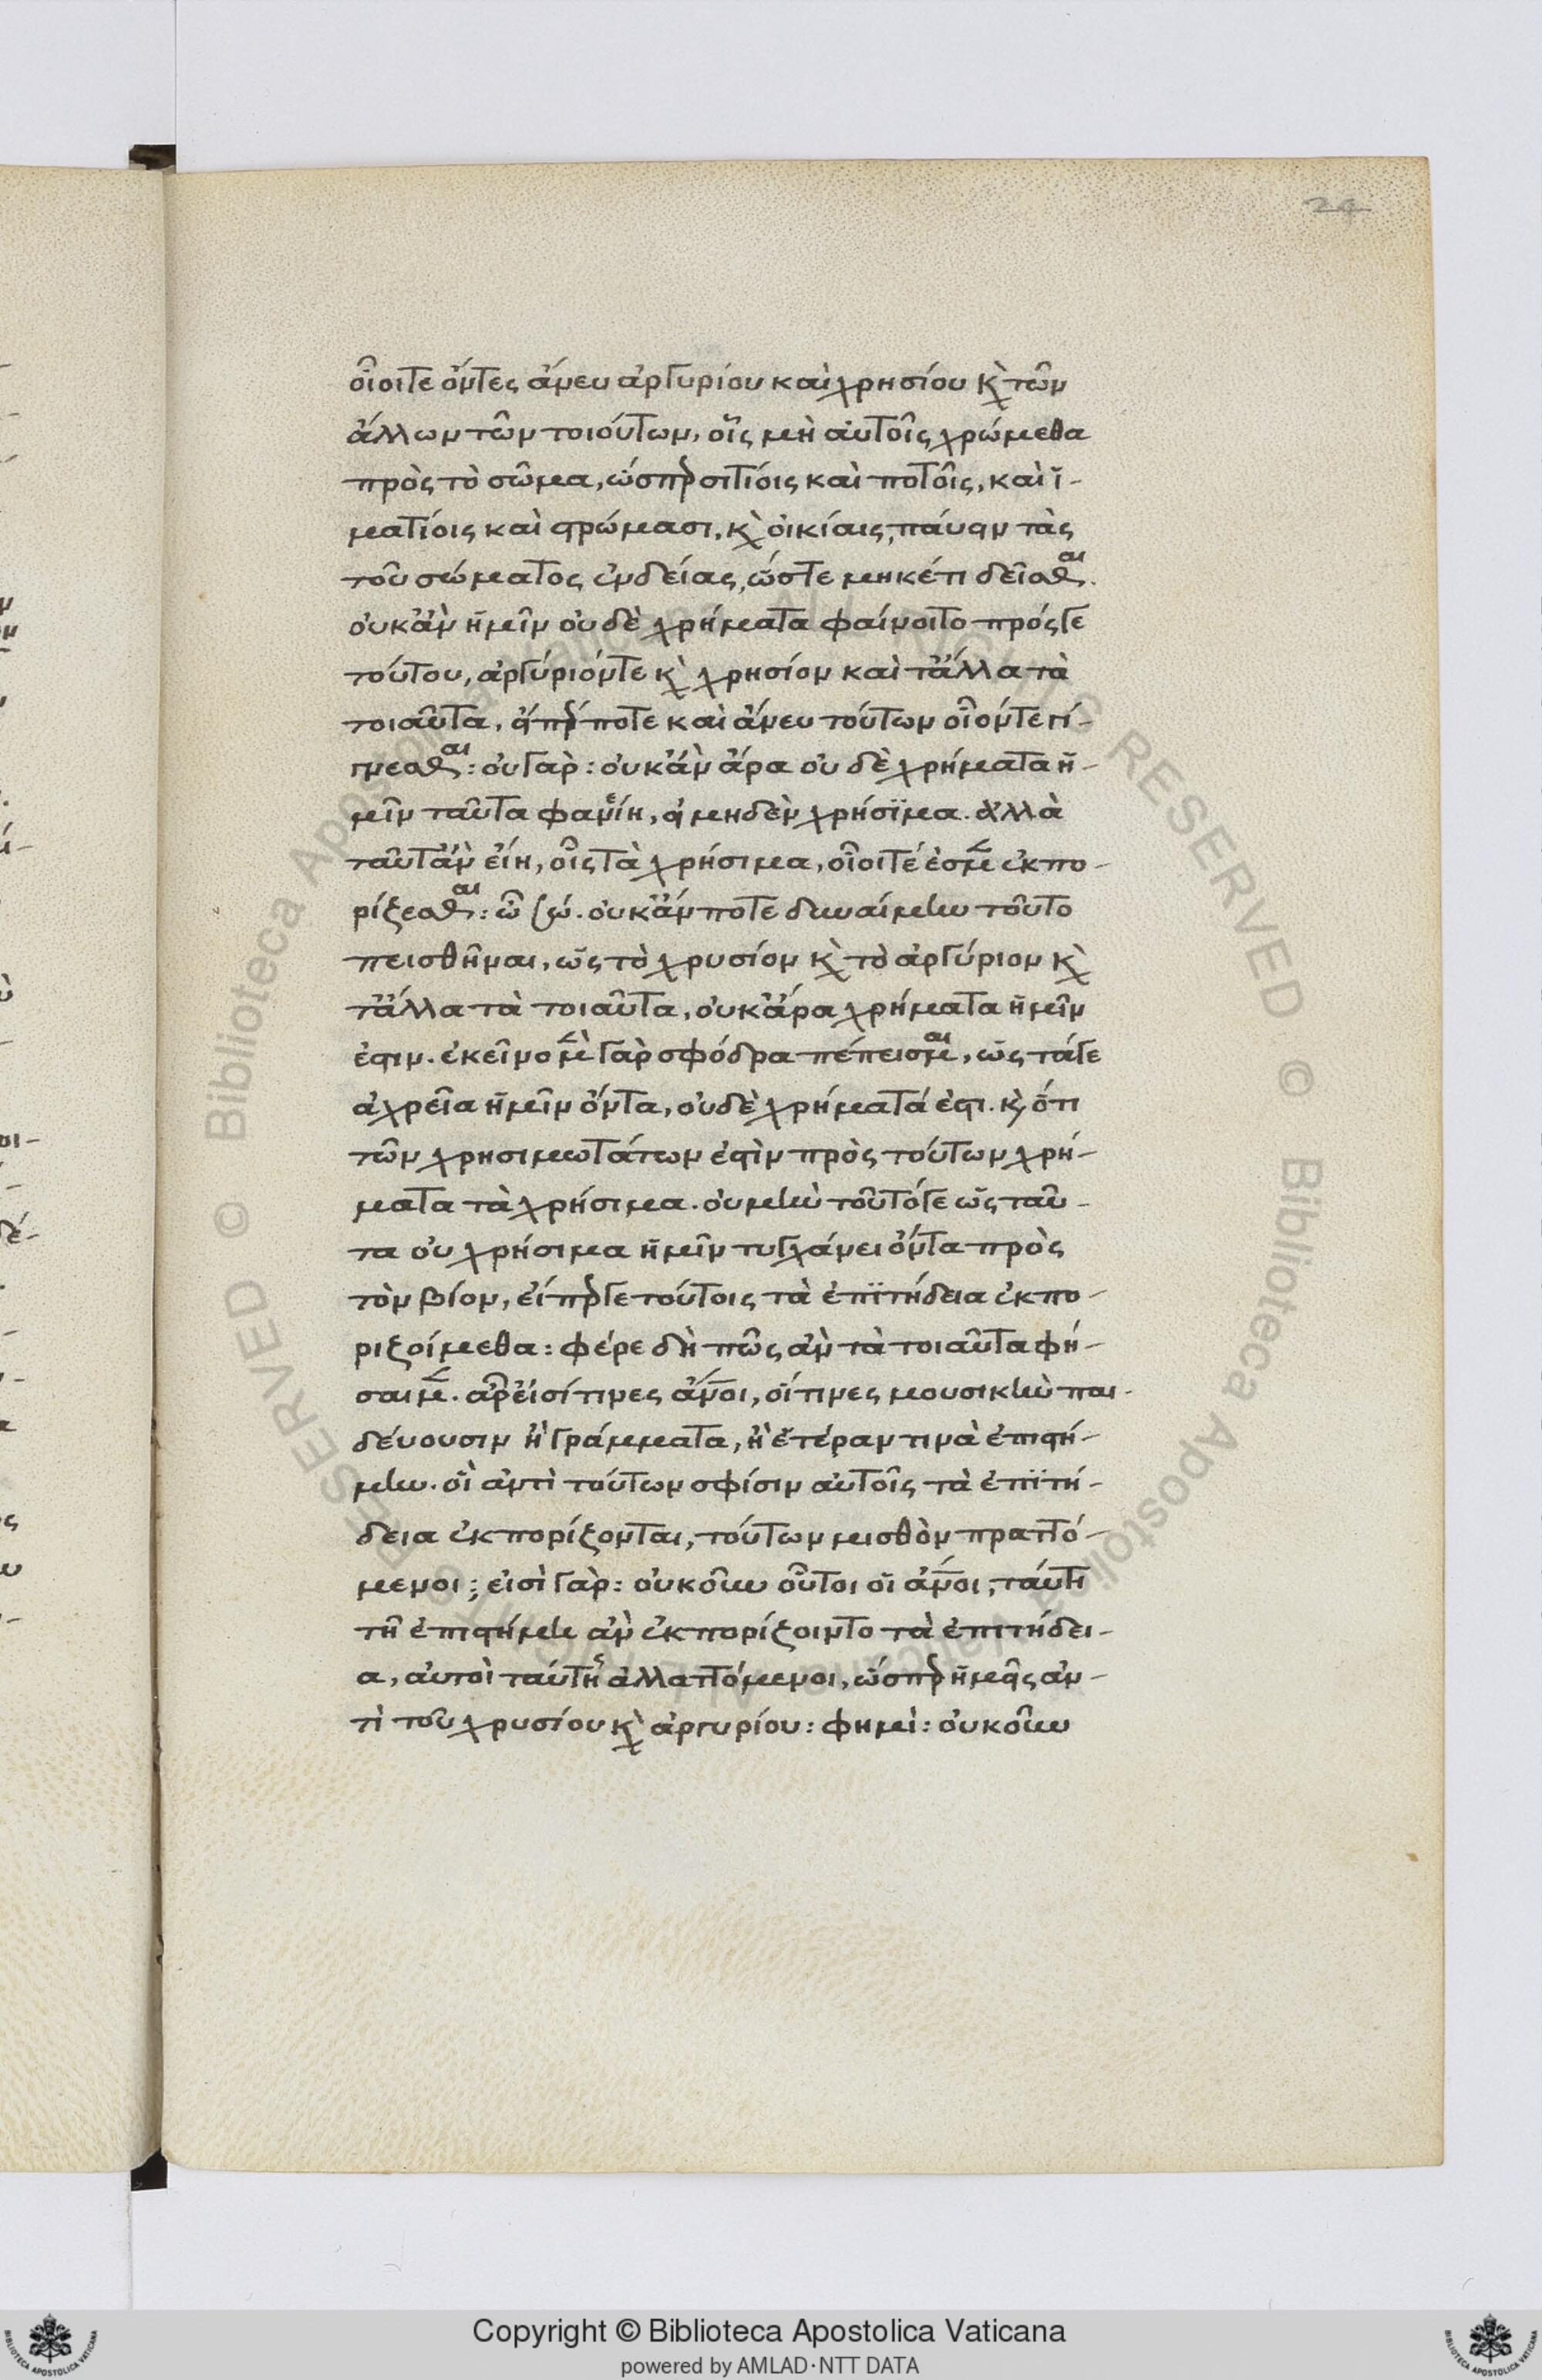 24
οἷοι τε ὄντες ἄνευ ἀργυρίου καὶ χρησίου κ̀ τῶν
ἄλλων τῶν τοιούτων, οἷς μὴ αὐτοῖς χρώμεθα
πρὸς τὸ σῶμα, ὥσπερ σιτίοις καὶ ποτοῖς, καὶ ἱ-
ματίοις καὶ στρώμασι, κ̀ οἰκίαις, παύειν τὰς
τοῦ σώματος ἐνδείας, ὥστε μηκέτι δεῖσθαι.
οὐκ ἂν ἡμῖν οὐδὲ χρήματα φαίνοιτο πρός γε
τούτου, ἀργύριόν τε κ̀ χρησίον καὶ τἄλλα τὰ
τοιαῦτα, εἴπερ ποτε καὶ ἄνευ τούτων οἷον τε γί-
γνεσθαι: οὐ γαρ: οὐκ ἂν ἄρα οὐδὲ χρήματα ἡ-
μῖν ταῦτα φανείη, εἰ μηδὲν χρήσϊμα. ἀλλὰ
ταῦτ ἂν εἴη, οἷς τὰ χρήσιμα, οἷοι τέ ἐσμὲν ἐκπο-
ρίζεσθαι: ὦ σώ. οὐκ ἄν ποτε δυναίμην τοῦτο
πεισθῆναι, ὡς τὸ χρυσίον κ̀ τὸ ἀργύριον κ̀
τἄλλα τὰ τοιαῦτα, οὐκ ἄρα χρήματα ἡμῖν
ἐστιν. ἐκεῖνο μὲν γὰρ σφόδρα πέπεισμαι, ὡς τά γε
ἀχρεῖα ἡμῖν ὄντα, οὐδὲ χρήματά ἐστι. κ̀ ὅτι
τῶν χρησιμωτάτων ἐστὶν πρὸς τούτων χρή-
ματα τὰ χρήσιμα. οὐ μὴν τοῦτό γε ὡς ταῦ-
τα οὐ χρήσιμα ἡμῖν τυγχάνει ὄντα πρὸς
τὸν βίον, εἴπερ γε τούτοις τὰ ἐπϊτήδεια ἐκπο-
ριζοίμεθα: φέρε δὴ πῶς ἂν τὰ τοιαῦτα φή-
σαιμεν. ἆρ εἰσί τινες ἄν̅οι, οἵτινες μουσικὴν παι-
δεύουσιν ἢ γράμματα, ἢ ἑτέραν τινὰ ἐπιστή-
μην. οἳ ἀντὶ τούτων σφίσιν αὐτοῖς τὰ ἐπϊτή-
δεια ἐκπορίζονται, τούτων μισθὸν πραττό-
μενοι; εἰσὶ γαρ: οὐκοῦν οὗτοι οἱ ἄν̅οι, ταύτῃ
τῇ ἐπιστήμῃ ἂν ἐκπορίζοιντο τὰ ἐπιτήδει-
α, αὐτοὶ ταύτης ἀλλαττόμενοι, ὥσπερ ἡμεῖς ἀν-
τὶ τοῦ χρυσίου κ̀ ἀργυρίου: φημί: οὐκοῦν
Copyright © Biblioteca Apostolica Vaticana
powered by AMLAD·NTT DATA